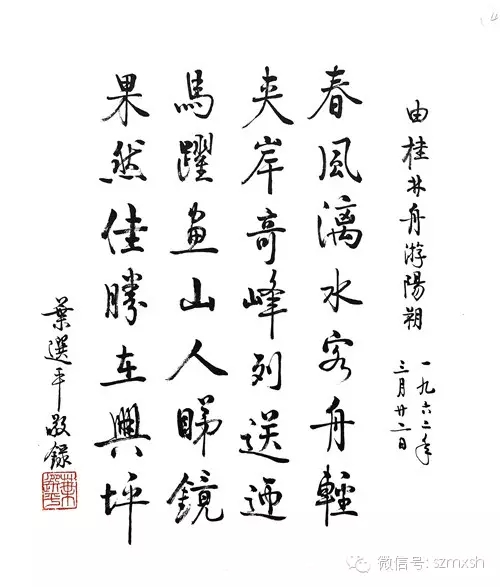 由桂林舟游陽朔
一九六二年
三月廿二日
春風漓水客舟輕
夾岸奇峰列送迎
馬躍畫山人睇鏡
果然佳勝在興坪
葉選平敬錄
微信号: szmxsh